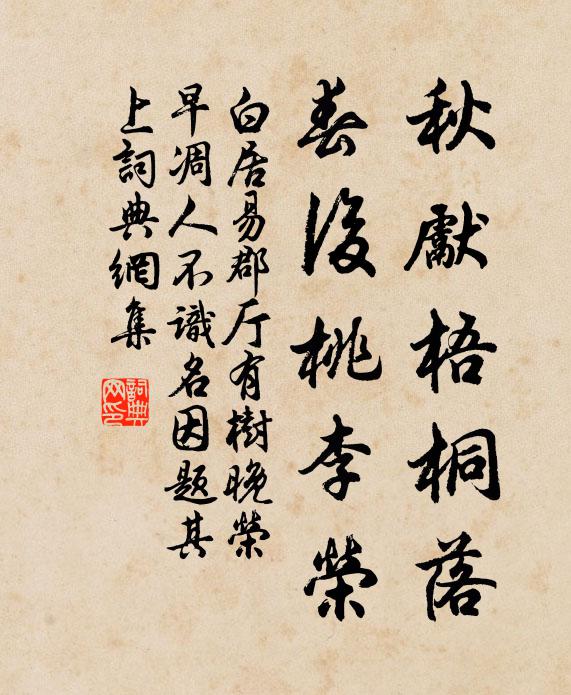 秋獻梧桐落
春後桃李榮
白居易郡厅有樹晚榮
早凋人不識名因題其
上詞典網集
詞典网印